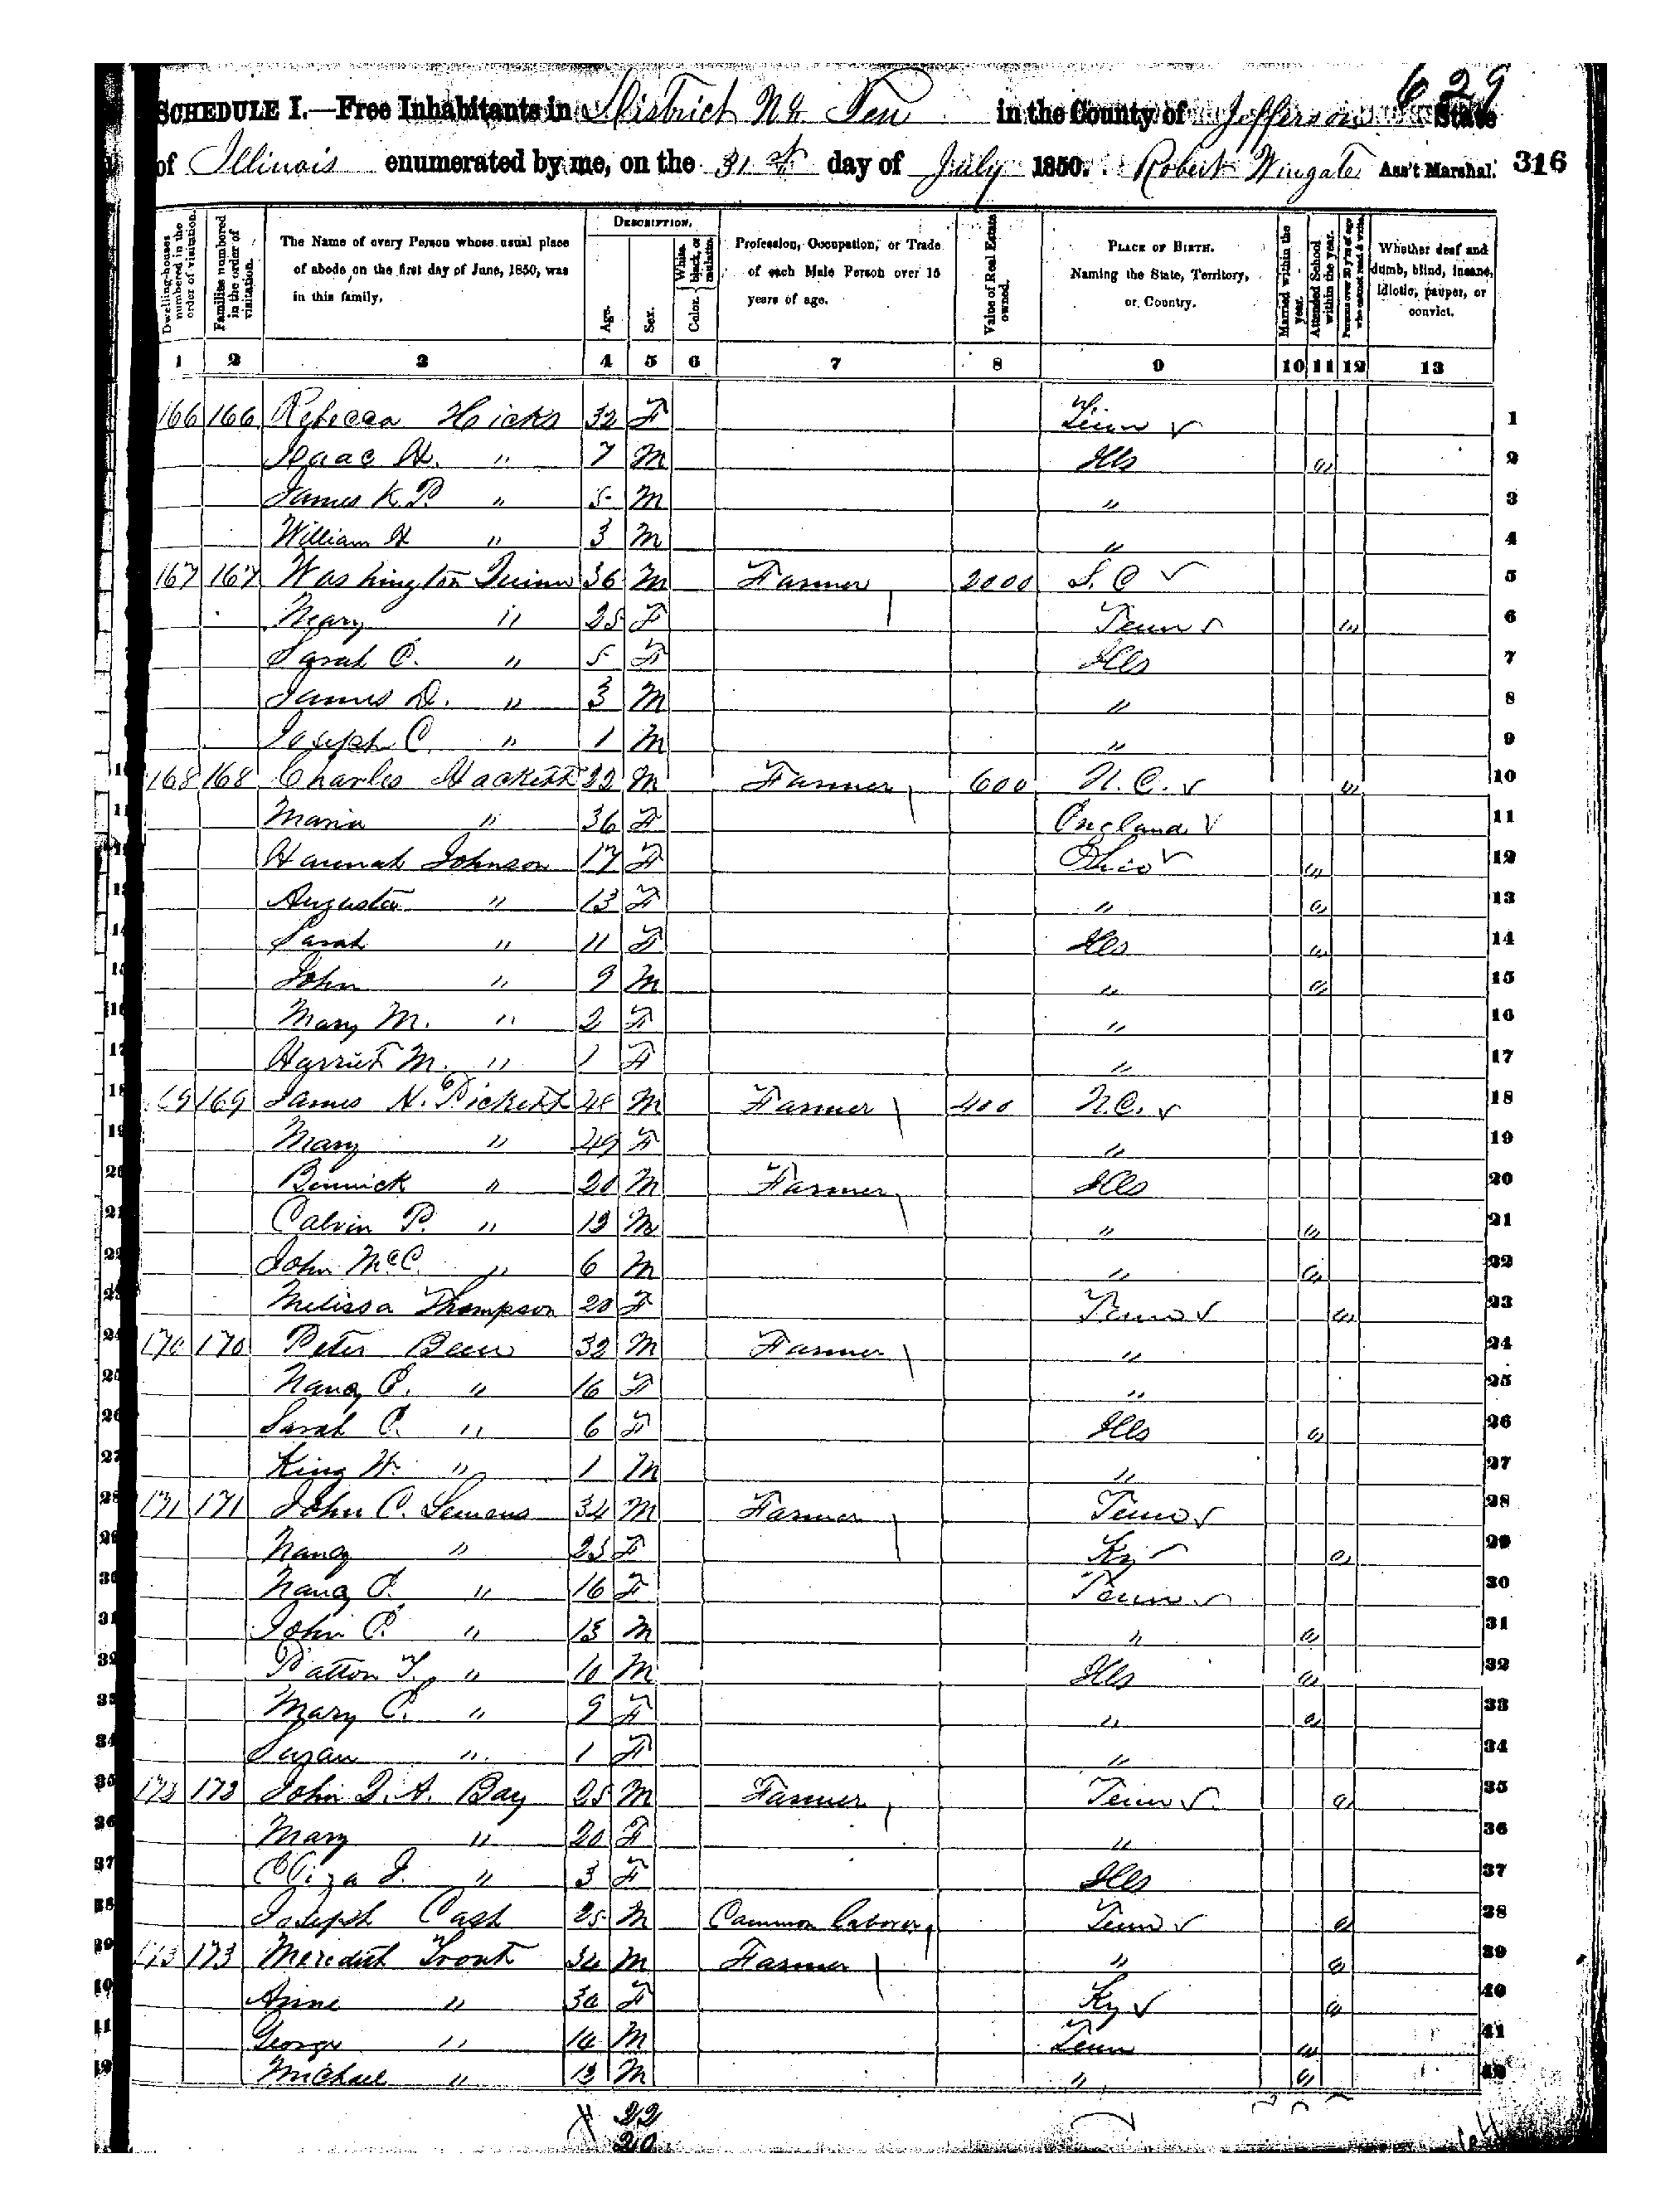 629
SCHEDULE I.—Free Inhabitants in District No Ten in the County of Jefferson State
of Illinois enumerated by me, on the 31st day of July 1850. Robert Wingate Ass't Marshal. 316
Dwelling-houses numbered in the order of visitation.
Families numbered in the order of visitation.
The Name of every Person whose usual place of abode on the first day of June, 1850, was in this family.
DESCRIPTION.
Age.
Sex.
Color. White, black, or mulatto.
Profession, Occupation, or Trade of each Male Person over 15 years of age.
Value of Real Estate owned.
PLACE OF BIRTH. Naming the State, Territory, or Country.
Married within the year.
Attended School within the year.
Persons over 20 y'rs of age who cannot read & write.
Whether deaf and dumb, blind, insane, idiotic, pauper, or convict.
1 2 3 4 5 6 7 8 9 10 11 12 13
166 166 Rebecca Hicks 32 F Tenn 1
Isaac H. " 7 M Ills " 2
James K. P. " 5 M " 3
William H " 3 M " 4
167 167 Washington Quinn 36 M Farmer 2000 S. C 5
Mary " 25 F Tenn " 6
Sarah C. " 5 F Ills 7
James D. " 3 M " 8
Joseph C. " 1 M " 9
168 168 Charles Hackett 32 M Farmer 600 N. C. " 10
Maria " 36 F England 11
Hannah Johnson 17 F Ohio " 12
Augusta " 13 F " " 13
Sarah " 11 F Ills " 14
John " 9 M " " 15
Mary M. " 2 F " 16
Harriet M. " 1 F " 17
169 169 James N. Pickett 48 M Farmer 400 N.C. 18
Mary " 49 F " 19
" 20 M Farmer Ills 20
Calvin P. " 13 M " " 21
John McC. " 6 M " " 22
Melissa Thompson 20 F Tenn " 23
170 170 Peter Been 32 M Farmer " 24
Nancy C. " 16 F " 25
Sarah C. " 6 F Ills " 26
King H. " 1 M " 27
171 171 John C. Lemens 34 M Farmer Tenn 28
Nancy " 23 F Ky " 29
Nancy C. " 16 F Tenn 30
John C. " 13 M " " 31
Patton T. " 10 M Ills " 32
Mary C. " 9 F " " 33
Suzan " 1 F " 34
172 172 John Q. A. Bay 25 M Farmer Tenn " 35
Mary " 20 F " 36
Eliza J. " 3 F Ills 37
Joseph Cash 25 M Common laborer Tenn " 38
173 173 Meredith Trout 34 M Farmer " " 39
Anne " 30 F Ky " 40
George " 14 M Tenn " 41
Michael " 13 M " " 42
22
20